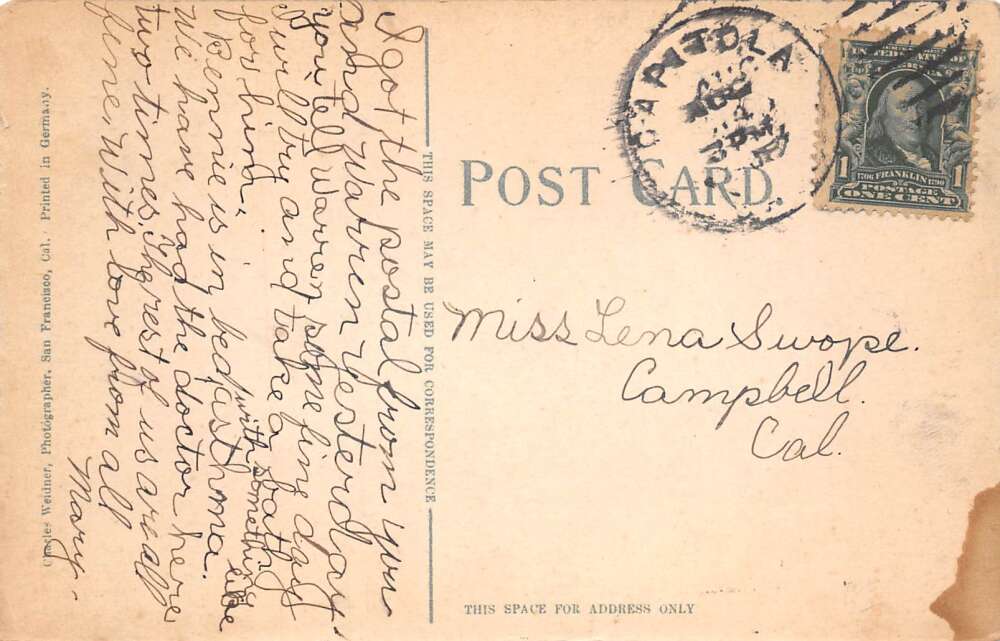 I got the postal from you
and Warren yesterday.
you tel Warren some fine day
I will try and take a bath
for him.
Bennie is in bed with
something like
asthma.
We have had the doctor here
two times. The rest of us are all
fine. With love from all
Mary.
Charles Weidner, Photographer, San Francisco, Cal. Printed in Germany.
THIS SPACE MAY BE USED FOR CORRESPONDENCE
POST CARD
CAPITOLA
AUG
1706 FRANKLIN 1790
POSTAGE
1 ONE CENT 1
Miss Lena Swope.
Campbell.
Cal.
THIS SPACE FOR ADDRESS ONLY